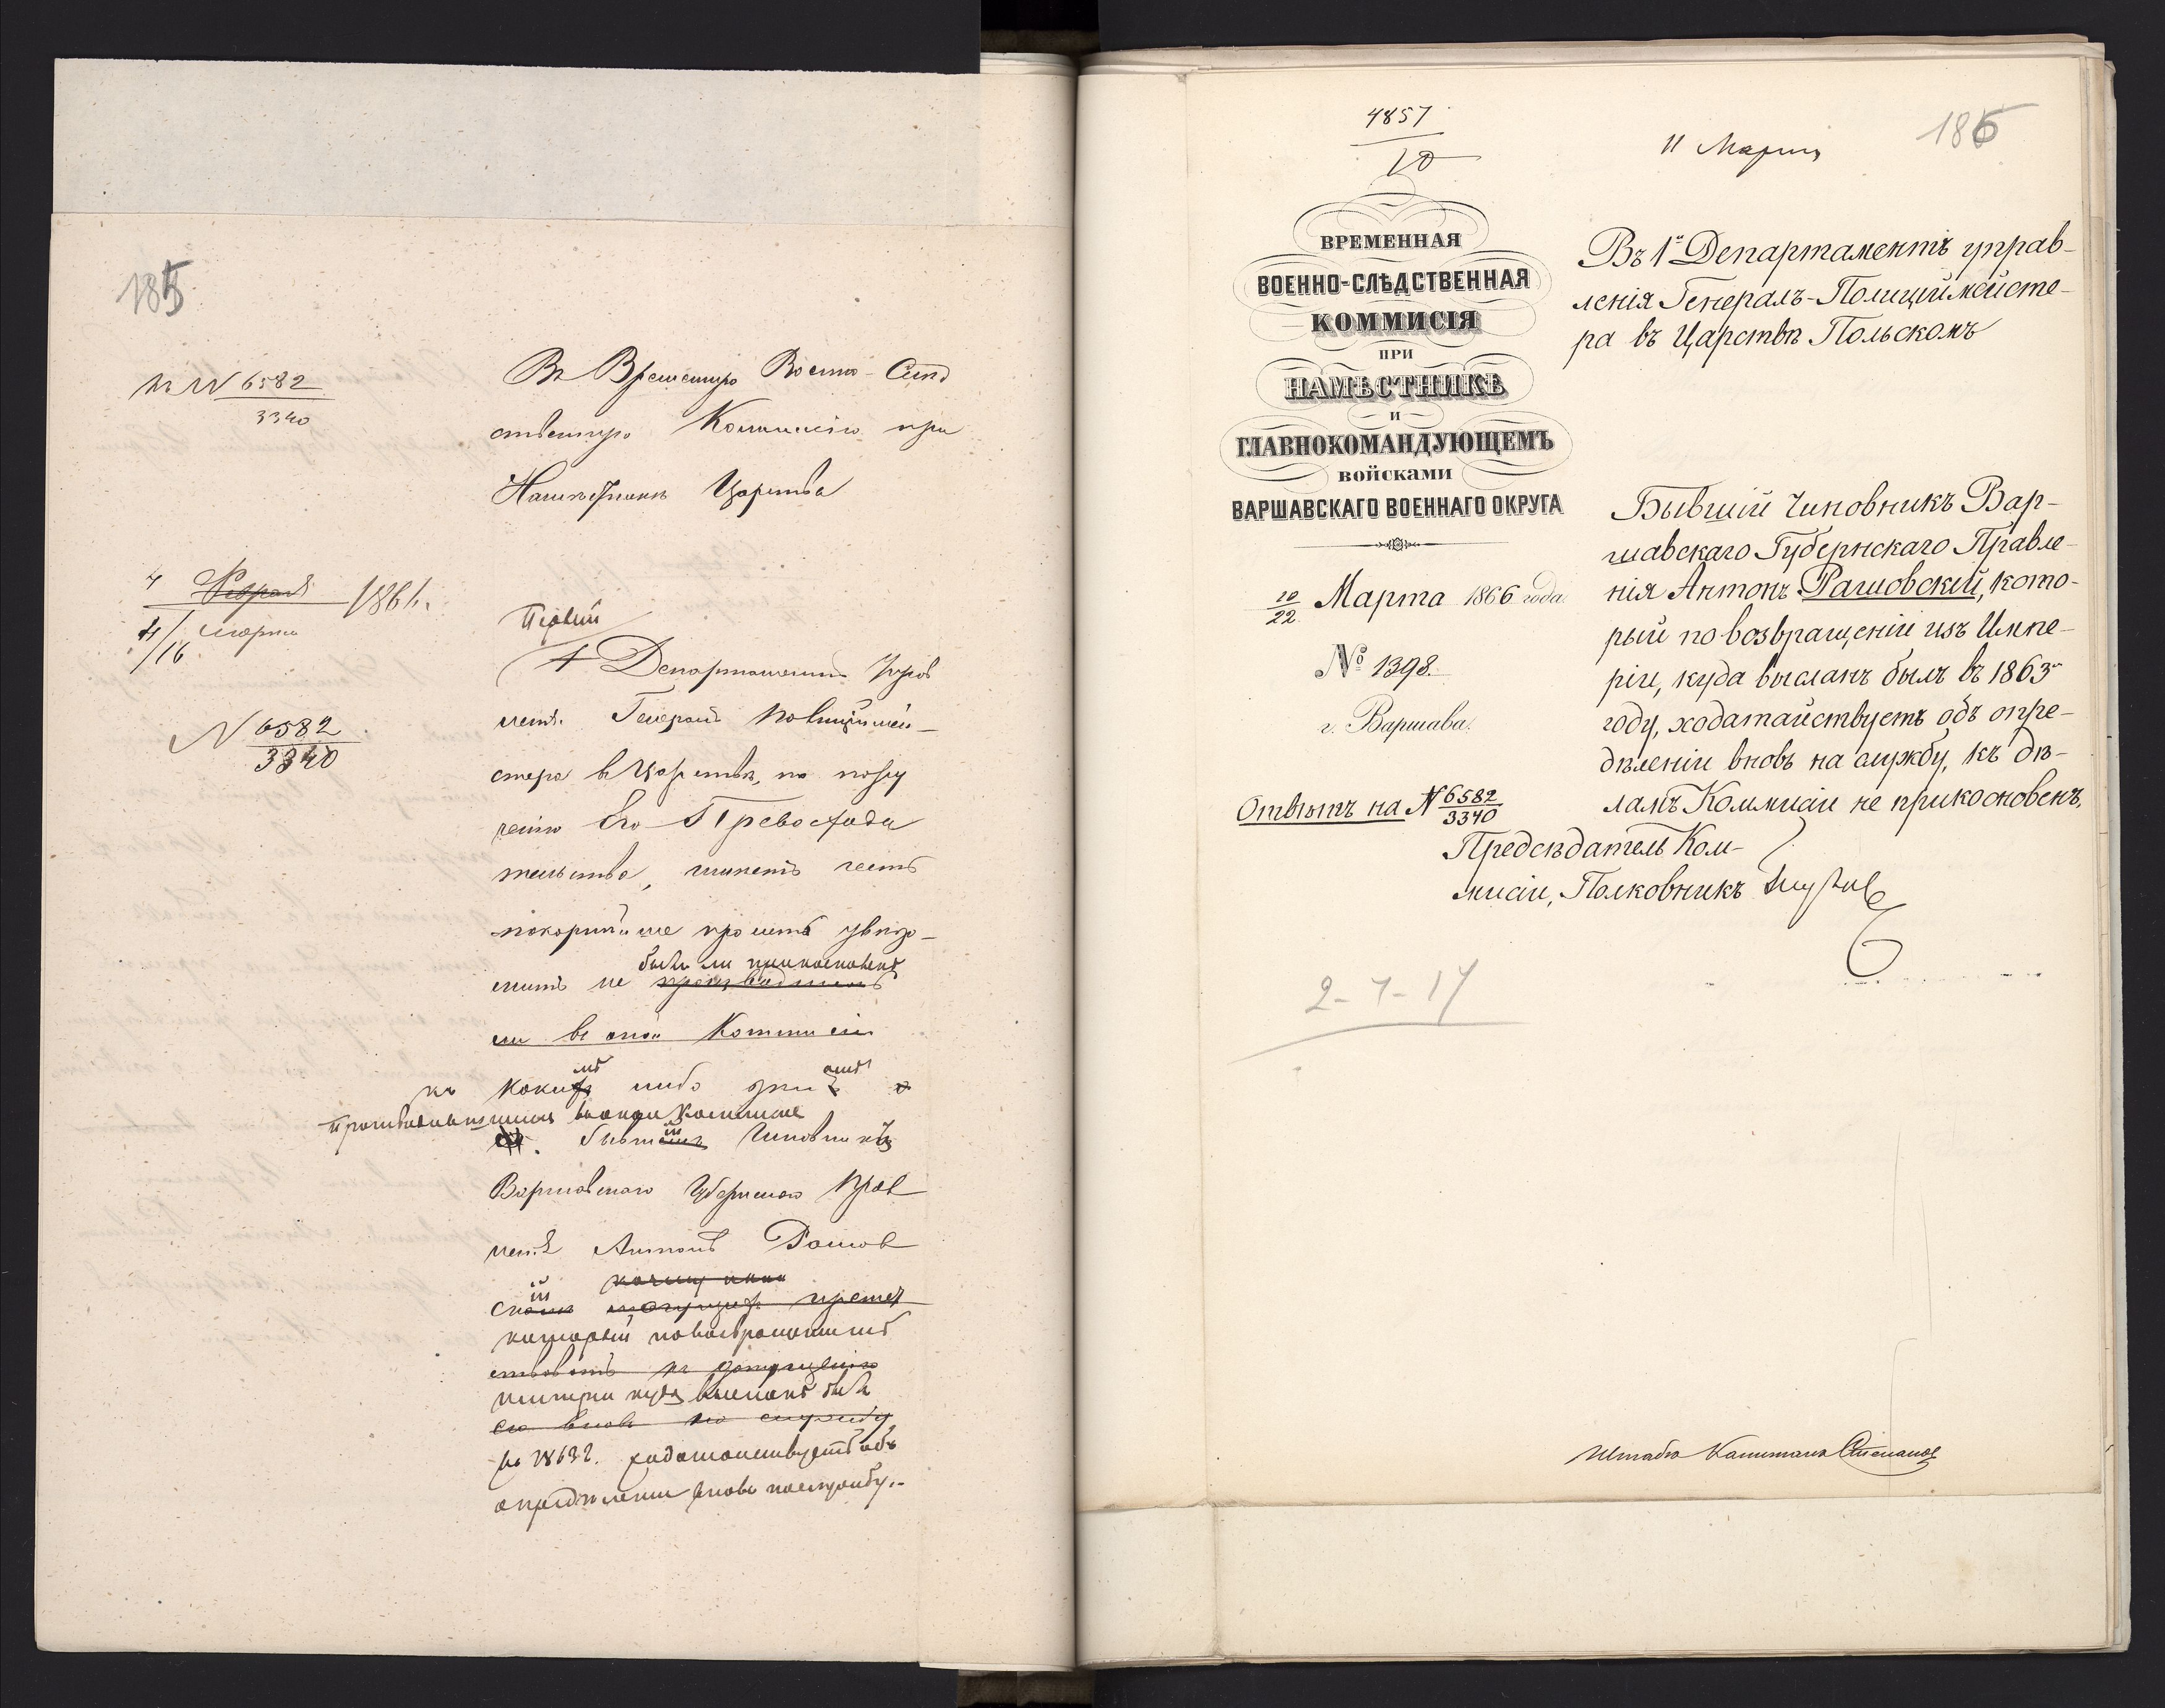 185
къ N 6582
3340
Въ Временную Военно-Слѣд
ственную Коммисію при
Намѣстникѣ Царства
4 Февраля 1866 г.
4/16 марта
N 6582
3340
Первый
1 Департаментъ Управ
ленія Генералъ Полицiймей-
стера въ Царствѣ, по пору
ченію Его Превосходи
тельства, имѣетъ честь
покорнѣйше проситъ увѣдо-
былъ ли прикосновенъ
мить не производилось
ли въ оной Коммисіи
къ какимъ либо дѣламъ о
производившимся въ оной Коммисіи
бывшій Чиновникъ
Варшавскаго Губернскаго Прав
ленія Антонъ Рашов
скій
который по возвращеніи изъ
ствовать къ допущенію
имперіи куда высланъ былъ
его вновь на службу
въ 1863 г. ходатайствуетъ объ
опредѣленіи вновь на службу.-
4857
10
11 Марта
186
ВРЕМЕННАЯ
ВОЕННО-СЛѢДСТВЕННАЯ
КОММИСІЯ
ПРИ
НАМѢСТНИКѢ
И
ГЛАВНОКОМАНДУЮЩЕМЪ
ВОЙСКАМИ
ВАРШАВСКАГО ВОЕННАГО ОКРУГА
10/22 Марта 1866 года.
№ 1398.
г. Варшава.
Отвѣтъ на N 6582
3340
Въ 1й Департаментъ управ-
ленія Генералъ-Полицiймейсте-
ра въ Царствѣ Польскомъ
Бывшій Чиновникъ Вар-
шавскаго Губернскаго Правле-
нія Антонъ Рашовскій, кото-
рый по возвращеніи изъ Импе-
ріи, куда высланъ былъ въ 1863м
году, ходатайствуетъ объ опре-
дѣленіи вновь на службу, къ дѣ-
ламъ Коммисіи не прикосновенъ.
Предсѣдатель Ком-
мисіи, Полковникъ
2-7-17
Штабсъ Капитанъ Степановъ